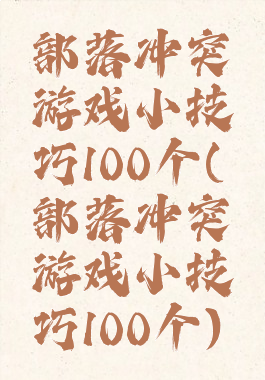 部落冲突
游戏小技
巧100个(
部落冲突
游戏小技
巧100个)